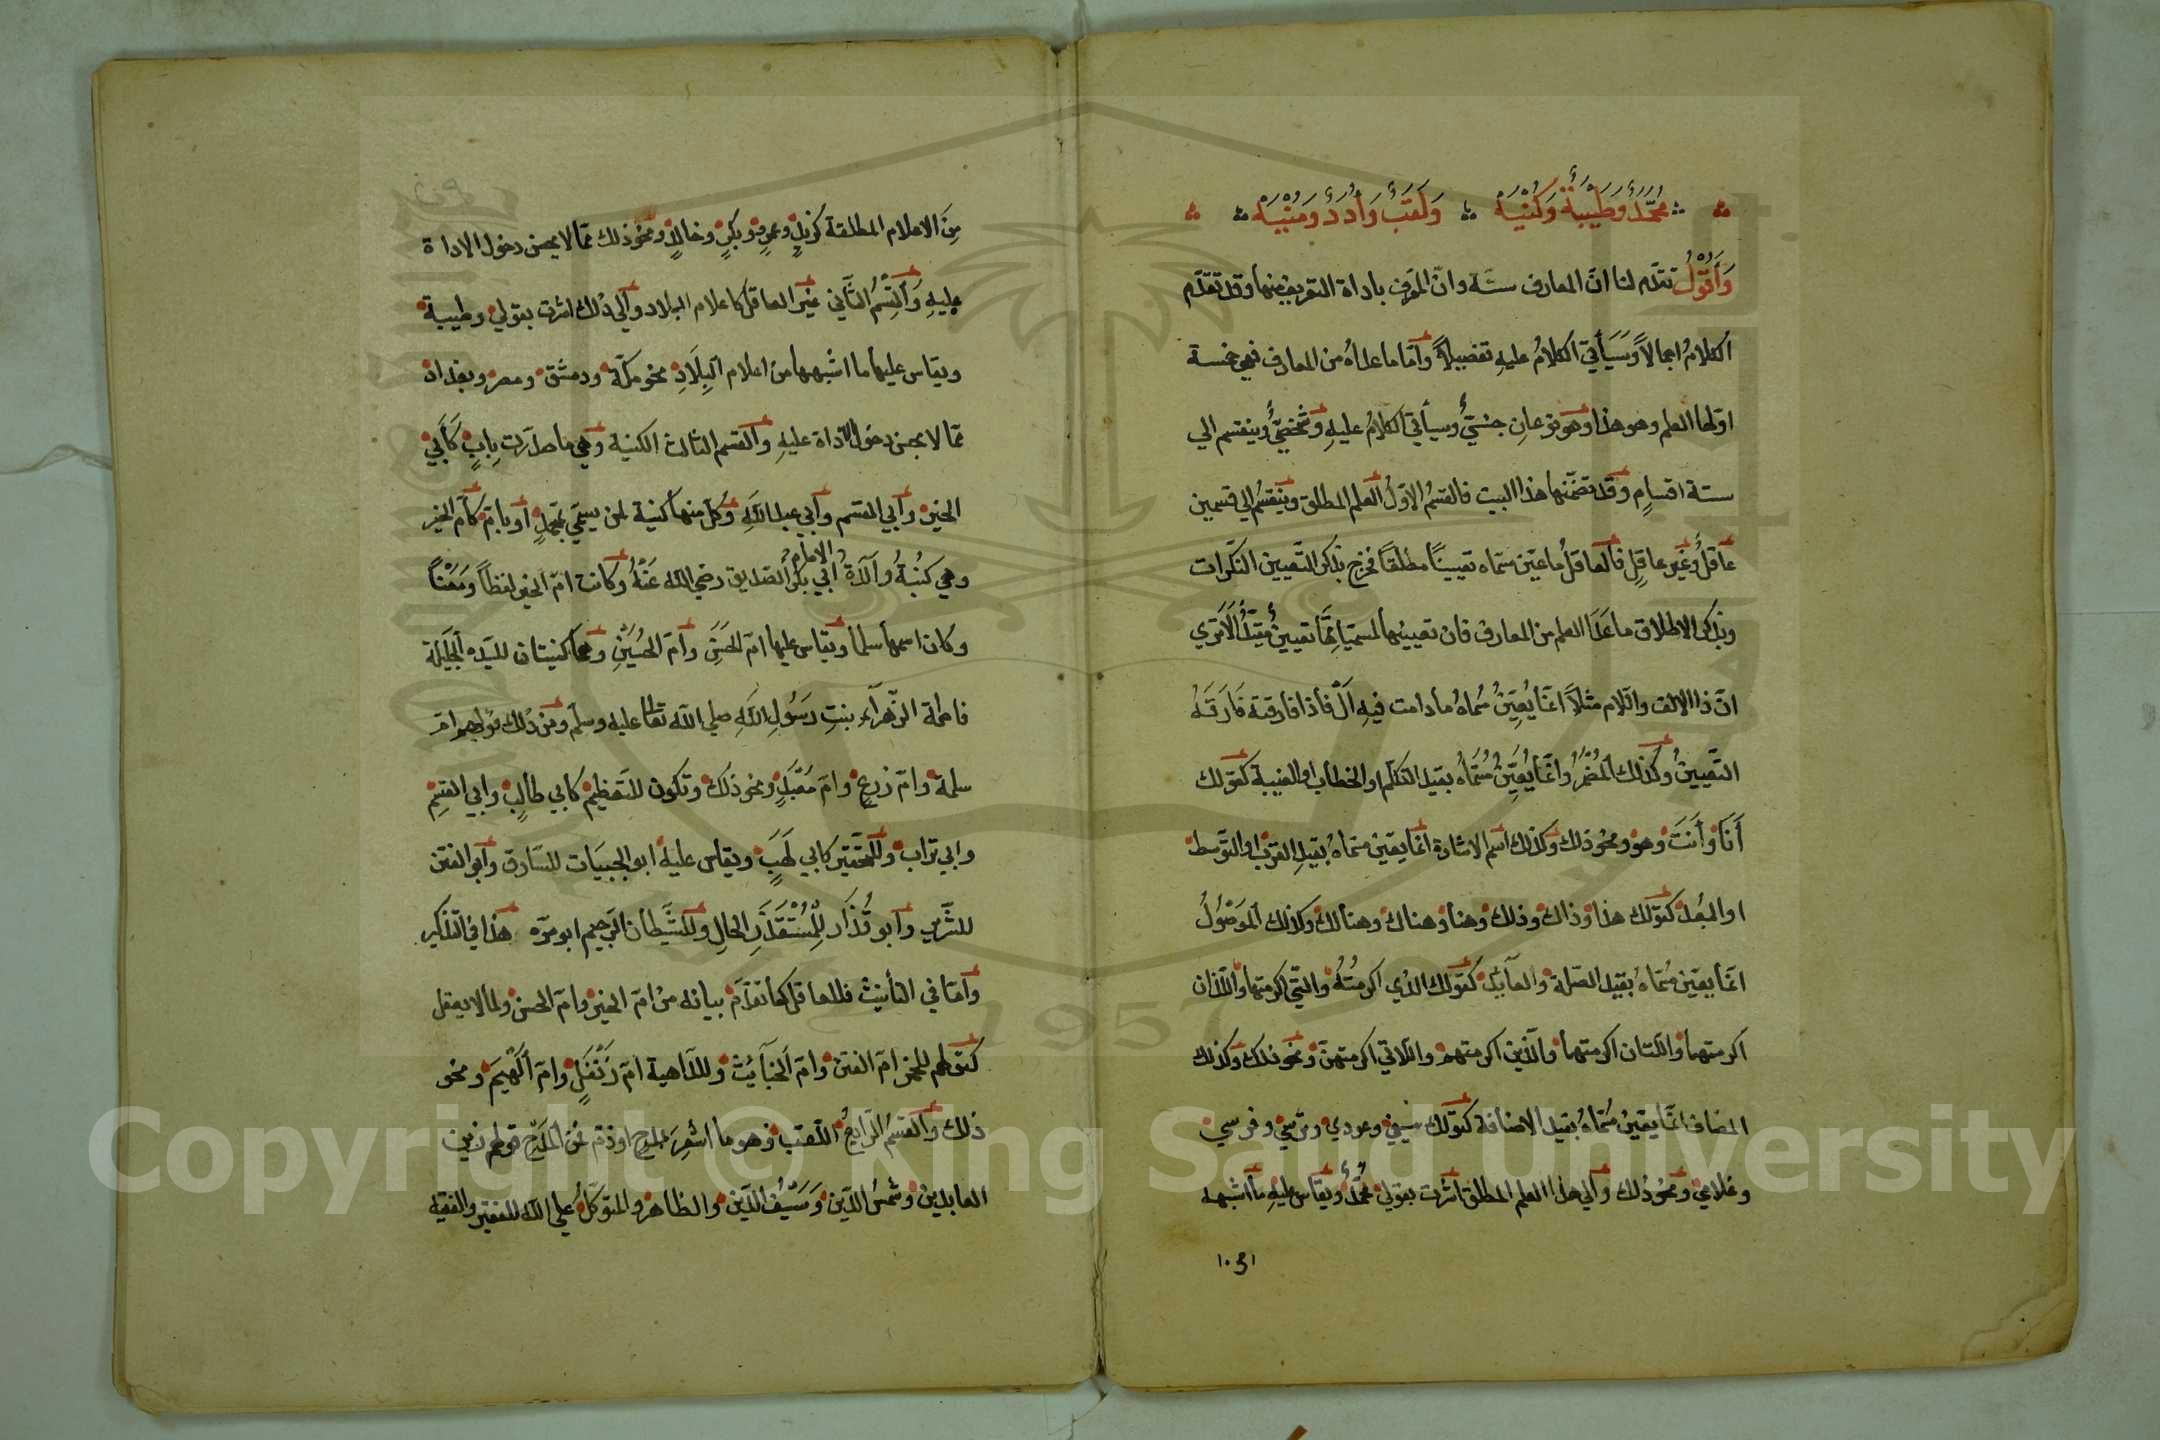 محمّدٌ وطَيْبَةٌ وَكُنْيَهْ وَلَقَبٌ وَأُدَدٌ وَمُنْيَهْ
وَأَقُوْلُ تقدّم لنا انّ المعارف ستّة وانّ المعرف باداة التعريف منها وقد تقدّم
الكلامُ اجمالاً وَسَيَأتي الكلامُ عليهِ تفصيلاً وأمّا ما عداهُ من المعارف فهي خمسة
اوّلها العلم وهو هذا وهو نوعانِ جنسيٌّ وسيأتي الكلامُ عليهِ وشخصيٌّ وينقسم الي
ستة اقسامٍ وقد تضمّنها هذا البيت فالقسمُ الاوّلُ العلم المطلق وينقسُم الي قسمين
عاقلٌ وغَير عاقِلٍ فالعاقلُ ما عيّن مسّماه تعيينًا مطلقًا فخرج بذكر التّعيين النكّرات
وبذكر الاطلاق ما عَدَا العلم من المعارف فان تعيينها لمسمّياتِها تعيينٌ مقيّدٌ ألاَ تري
انّ ذا الالف والّلام مثلاً انمّا يُعيِّنُ مُسماهُ ما دامت فيهِ اَلْ فأذا فارقتهُ فَارَقَهُ
التّعيينُ وكذلك المُضْمَرُ وانمّا يُعيِّنُ مُسمّاهُ بقيد التكلّم او الخطاب او الغيبة كقولك
أَنَا وأَنتَ وهو ونحو ذلك وكذلك اسم الاشارة انمّا يعيّن مسمّاهُ بقيدِ القرب او التوّسط
او البُعد كقولك هذا وذاك وذلك وهنا وهناك وهنالك وكذلك الموصُولُ
انمّا يعيّن مُسمّاهُ بقيد الصّلة والعآئد كقولك الذي اكرمتُهُ والتّي اكرمتها واللّذان
اكرمتهما والّلتان اكرمتهما والّذين اكرمتهم والّلاتي اكرمتهنّ ونحو ذلك وكذلك
المضاف انمّا يعيّنُ مُسمّاهُ بقيد الاضافة كقولك سيفي وعودي وترسي وفرسي
وغلامي ونحو ذلك وألي هذا العلم المطلق اشرت بقولي محمّدٌ ويقاس عليهِ ما اشبهه
مِنَ الاعلام المطلقة كزيدٍ وعمرٍو وبكرٍ وخالدٍ ونحو ذلك ممّا لا يحسن دخول الاداة
عليهِ وَالْقِسْمُ الثّاني غير العاقل كاعلام البلاد وألي ذلك اشرت بقولي وطيبة
ويقاس عليها ما اشبهها من اعلام البِلَادِ نحو مكّة ودمشق ومصر وبغداد
ممّا لا يحسن دخول الاداة عليهِ والقسم الثالث الكنية وهي ما صدّرت بِابٍ كَأَبي
الخير وأبي القسم وأبي عبد اللهِ وكل منها كنية لمن يسمّي بمحمدٍ أو بامّ كأم الخير
وهي كنيةُ والدةُ الامام أبي بكر الصديق رضي الله عَنْهُ وكانت امّ الخير لفظاً ومَعْناً
وكان اسمها سلما ويقاس عليها امّ الحسَنِ وأمّ الحُسَيْنِ وهما كنيتان للسّيده الجَليلة
فاطمة الزّهرآء بنتِ رسُولِ اللهِ صلي الله تعالي عليه وسلّم ومن ذلك قولهم امّ
سلمة وامّ زرعٍ وامّ مَعْبَدٍ ونحو ذلك وتكون للتّعظيم كابي طالبٍ وابي القسم
وابي تراب وللتّحقير كابي لهَبٍ ويقاس عليه ابو الجبيَات للسّارق وأبو الفتن
للشّرير وأبو قُذَار لِلْمُسْتَقْذَرِ الحالِ وللشّيطان الرّجيم ابو مرّه هذا في التذكير
وأمّا في التأنيث فللعاقل كما تقدّم بيانه من امّ الخير وامّ الحسن ولما لا يعقل
كقولهم للخمر امّ الفتن وامّ الخبآئِث وللدّاهية امّ زَنْفَلٍ وامّ اللّهيم ونحو
ذلك والقسمُ الرّابعُ اللّقب وهو ما اشعِرَ بمدح او ذمّ فمن المدّح قولهم زين
العابدين وشمسُ الدّين وَسَيْفُ الدّين والظاهر والمتوكّلُ علي الله للفقير والفقيه
Copyright © King Saud University
1957